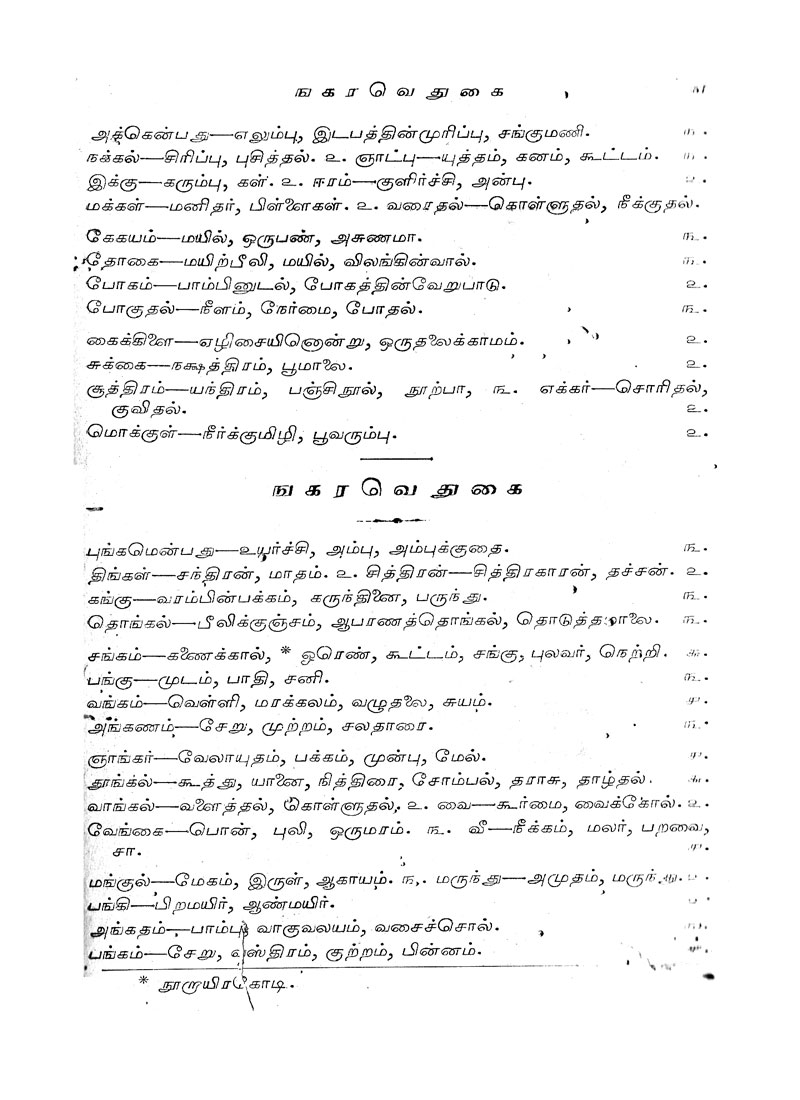 ஙகரவெதுகை
அக்கென்பது—எலும்பு, இடபத்தின்முரிப்பு, சங்குமணி. ௩.
நக்கல்—சிரிப்பு, புசித்தல். ௨. ஞாட்பு—யுத்தம், கனம், கூட்டம். ௩.
இக்கு—கரும்பு, கள். ௨. ஈரம்—குளிர்ச்சி, அன்பு. ௨.
மக்கள்—மனிதர், பிள்ளைகள். ௨. வரைதல்—கொள்ளுதல், நீக்குதல்.
கேகயம்—மயில், ஒருபண், அசுணமா. ௩.
தோகை—மயிற்பீலி, மயில், விலங்கின்வால். ௩.
போகம்—பாம்பினுடல், போகத்தின்வேறுபாடு. ௨.
போகுதல்—நீளம், நேர்மை, போதல். ௩.
கைக்கிளை—ஏழிசையினொன்று, ஒருதலைக்காமம். ௨.
சுக்கை—நக்ஷத்திரம், பூமாலை. ௨.
சூத்திரம்—யந்திரம், பஞ்சிநூல், நூற்பா, ௩. எக்கர்—சொரிதல்,
குவிதல். ௨.
மொக்குள்—நீர்க்குமிழி, பூவரும்பு. ௨.
ஙகரவெதுகை
புங்கமென்பது—உயர்ச்சி, அம்பு, அம்புக்குதை. ௩.
திங்கள்—சந்திரன், மாதம். ௨. சித்திரன்—சித்திரகாரன், தச்சன். ௨.
கங்கு—வரம்பின்பக்கம், கருந்தினை, பருந்து. ௩.
தொங்கல்—பீலிக்குஞ்சம், ஆபரணத்தொங்கல், தொடுத்தமாலை. ௩.
சங்கம்—கணைக்கால், * ஒரெண், கூட்டம், சங்கு, புலவர், நெற்றி. ௬.
பங்கு—முடம், பாதி, சனி. ௩.
வங்கம்—வெள்ளி, மரக்கலம், வழுதலை, சுயம். ௪.
அங்கணம்—சேறு, முற்றம், சலதாரை. ௩.
ஞாங்கர்—வேலாயுதம், பக்கம், முன்பு, மேல். ௪.
தூங்கல்—கூத்து, யானை, நித்திரை, சோம்பல், தராசு, தாழ்தல். ௬.
வாங்கல்—வளைத்தல், கொள்ளுதல், ௨. வை—கூர்மை, வைக்கோல். ௨.
வேங்கை—பொன், புலி, ஒருமரம். ௩. வீ—நீக்கம், மலர், பறவை,
சா. ௪.
மங்குல்—மேகம், இருள், ஆகாயம். ௩. மருந்து—அமுதம், மருந்து. ௨.
பங்கி—பிறமயிர், ஆண்மயிர். ௨.
அங்கதம்—பாம்பு, வாகுவலயம், வசைச்சொல். ௩.
பங்கம்—சேறு, வஸ்திரம், குற்றம், பின்னம். ௪.
* நூறாயிரகோடி.